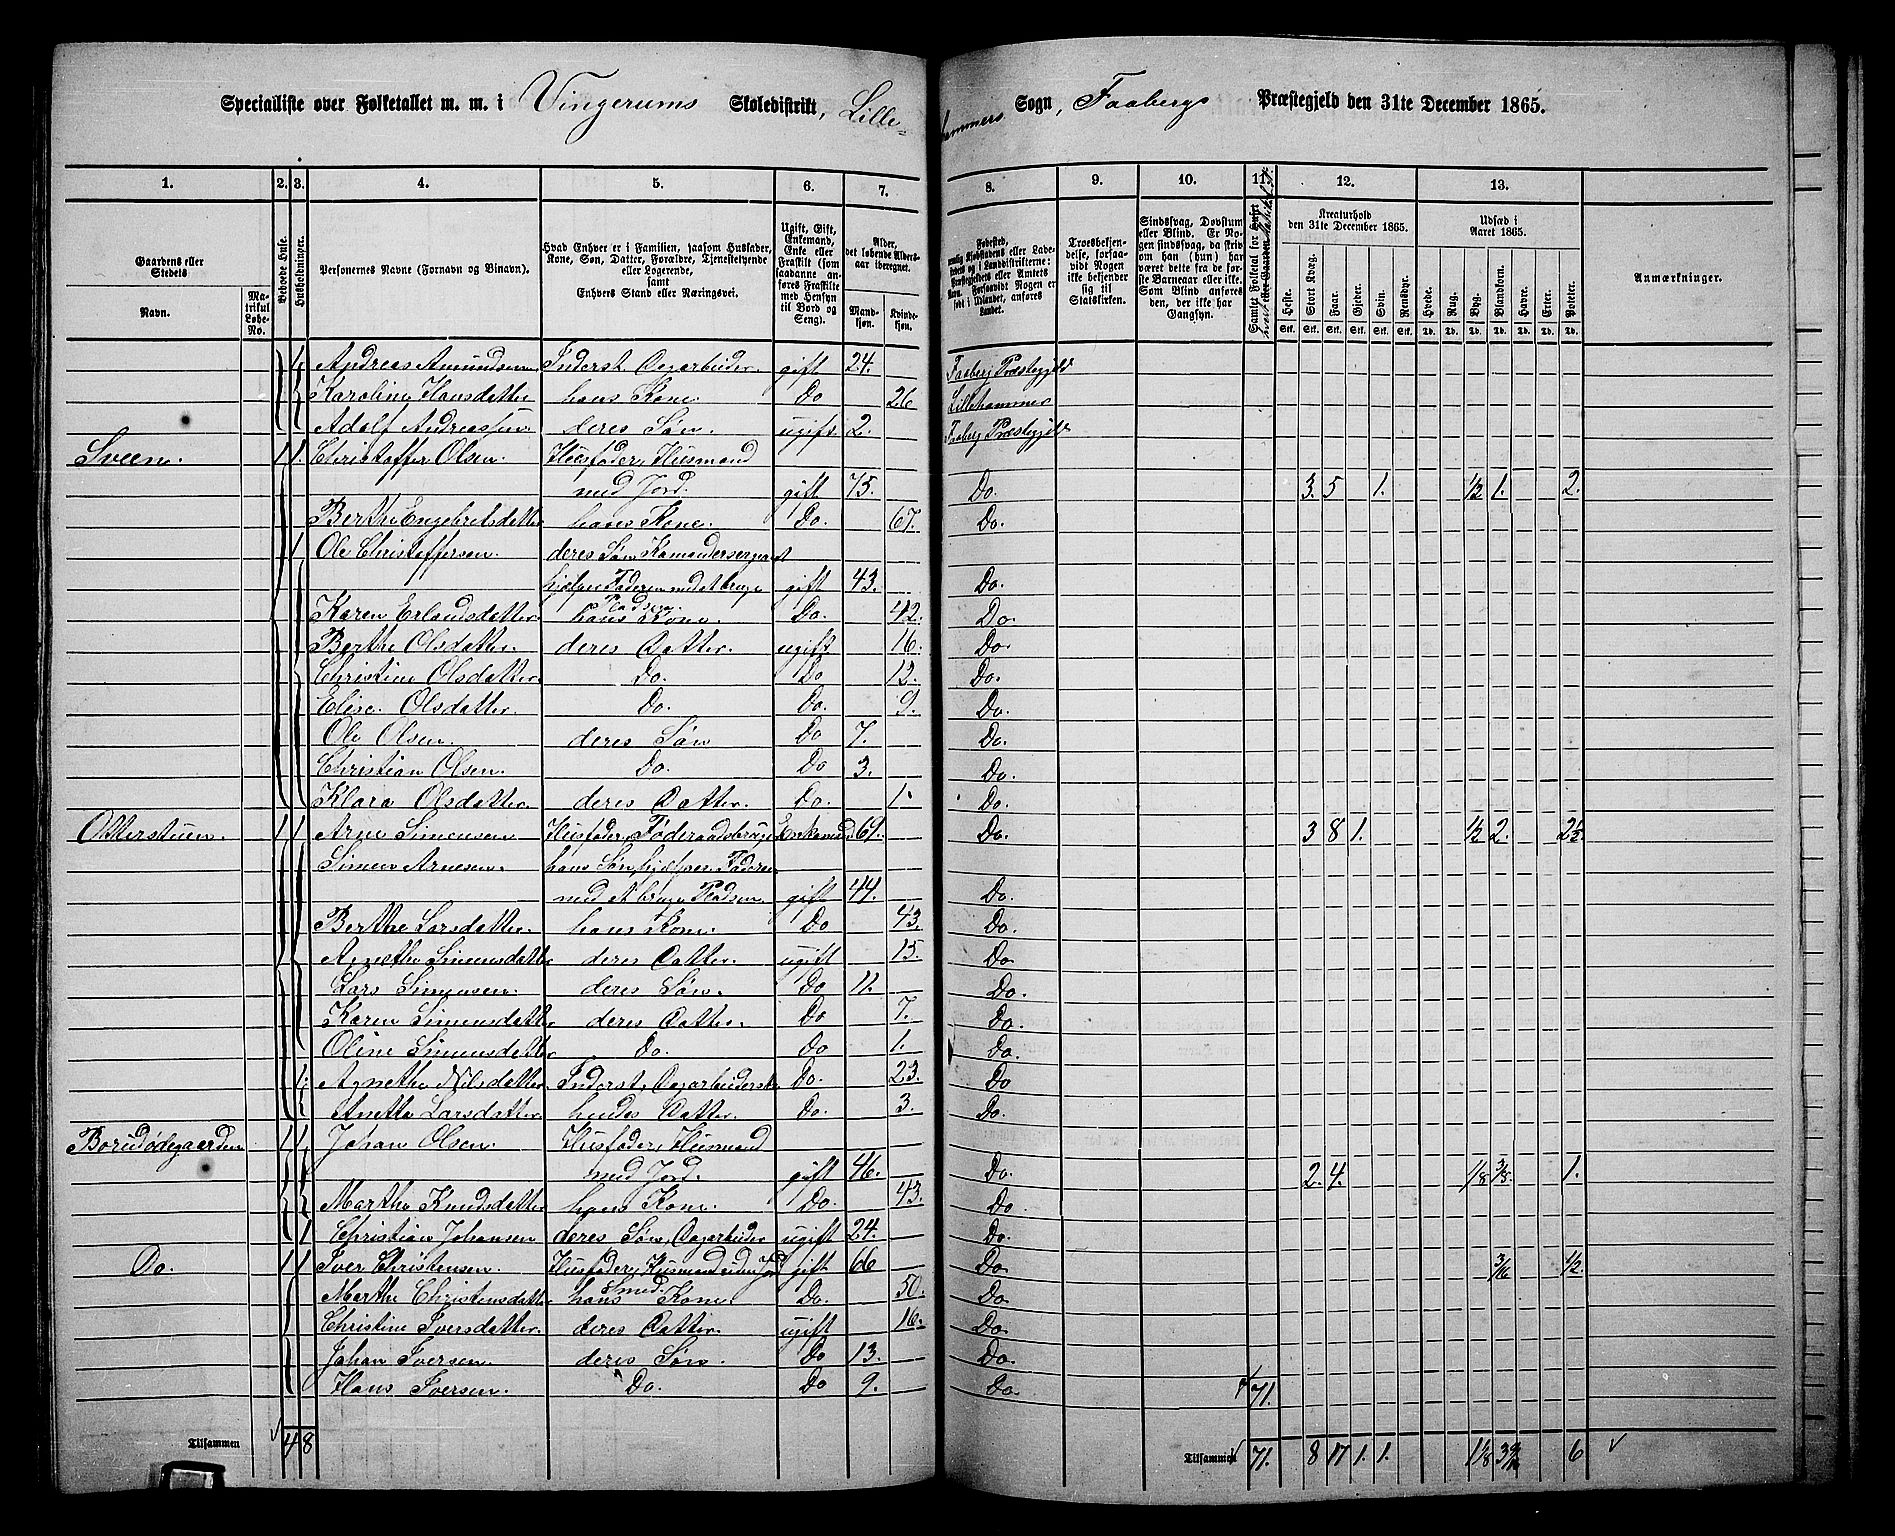 Specialliste over Folketallet m. m. i Vingerums Skoledistrikt, Lille-
hammers Sogn, Faabergs Præstegjeld den 31te December 1865.
1. 2. 3. 4. 5. 6. 7. 8. 9. 10. 11. 12. 13.
Gaardens eller Stedets
Navn.
Matrikul Løbe-No.
Beboede Huse.
Husholdninger.
Personernes Navne (Fornavn og Binavn).
Hvad Enhver er i Familien, saasom Husfader, Kone, Søn, Datter, Forældre, Tjenestetyende eller Logerende, samt Enhvers Stand eller Næringsvei.
Ugift, Gift, Enkemand, Enke eller Fraskilt (som saadanne anføres Fraskilte med Hensyn til Bord og Seng).
Alder, det løbende Aldersaar iberegnet.
Mandkjøn. Kvindekjøn.
Troesbekjendelse, forsaavidt Nogen ikke bekjender sig til Statskirken.
Sindssvag, Døvstum eller Blind. Er Nogen sindssvag, da skrives om han (hun) har været dette fra de første Barneaar eller ikke. Som Blind anføres den, der ikke har Gangsyn.
Kreaturhold den 31te December 1865.
Heste. Stort Kvæg. Faar. Gjeder. Svin. Rensdyr.
Udsæd i Aaret 1865.
Hvede. Rug. Byg. Blandkorn. Havre. Erter. Poteter.
Anmærkninger.
1. Andreas Amundsen Inderst, Dagarbeider. gift 24. Faaberg Præstegjeld
Karoline Hansdatter hans Kone. Do 26 Lillehammer
Adolf Andreassen. deres Søn. ugift. 2. Faaberg Præstegjeld
Sveen. 1 1. Christoffer Olsen. Husfader, Husmand
med Jord. gift 75. Do. 3. 5 1. 1/2 1. 2.
Berthe Engebretsdatter hans Kone. Do. 67. Do.
1 Ole Christoffersen. deres Søn
hjælper Faderen med at bruge gift 43. Do.
Pladsen.
Karen Erlandsdatter. hans Kone. Do. 42. Do.
Berthe Olsdatter. deres Datter. ugift 16. Do.
Christine Olsdatter. Do. Do 12. Do.
Elise Olsdatter. Do. Do. 9. Do.
Ole Olsen. deres Søn Do 7. Do.
Christian Olsen. Do. Do 3. Do.
Klara Olsdatter. deres Datter. Do. 1. Do.
Otterstuen. 1 1 Arne Simensen Husfader, Enkemand 69. Do. 3 8 1. 1/2 2. 2 1/2
Simen Arnesen. hans Søn, hjælper Faderen
med at bruge Pladsen. gift 44. Do.
Berthe Larsdatter. hans Kone. Do 43. Do.
Agnethe Simensdatter deres Datter. ugift 15. Do.
Lars Simensen. deres Søn. Do 11. Do.
Karen Simensdatter deres Datter. Do 7. Do.
Oline Simensdatter Do. Do 1. Do.
1. Agnethe Nilsdatter Inderst, Do. 23. Do
Anethe Larsdatter hendes Datter. Do. 3. Do.
Borudødegaarden 1 1 Johan Olsen. Husfader, Husmand
med Jord. gift 46. Do. 2. 4. 1/8 3/8. 1.
Marthe Knudsdatter hans Kone. Do. 43. Do.
1 Christian Johansen deres Søn, Dagarbeider ugift 24. Do.
Do. 1 1 Iver Christensen. Husfader, Husmand uden Jord gift 66 Do. 3/16 1/2.
Smed.
Marthe Christensdatter hans Kone. Do. 50. Do.
Christine Iversdatter. deres Datter. ugift 16. Do.
Johan Iversen. deres Søn. Do 13. Do.
Hans Iversen. Do. Do 9. Do. 71.
Tilsammen 4 8
Tilsammen 71. 8 17 1. 1. 1 1/8 6